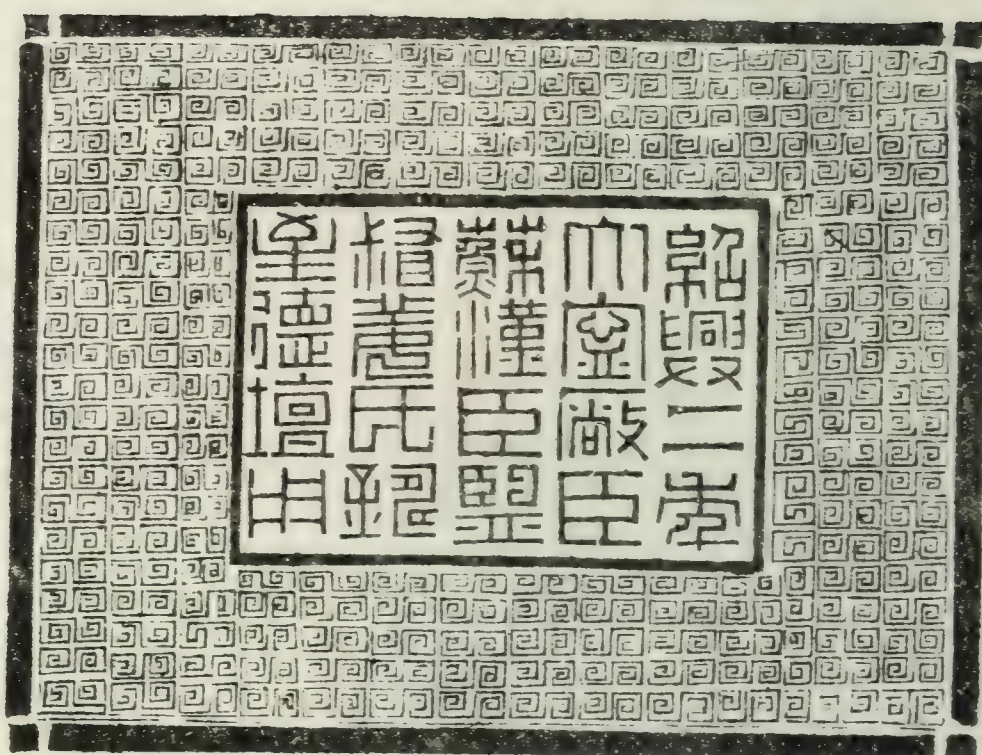 紹興二年
大寧廠臣
蘇漢臣監
督姜氏鑄
至德壇用